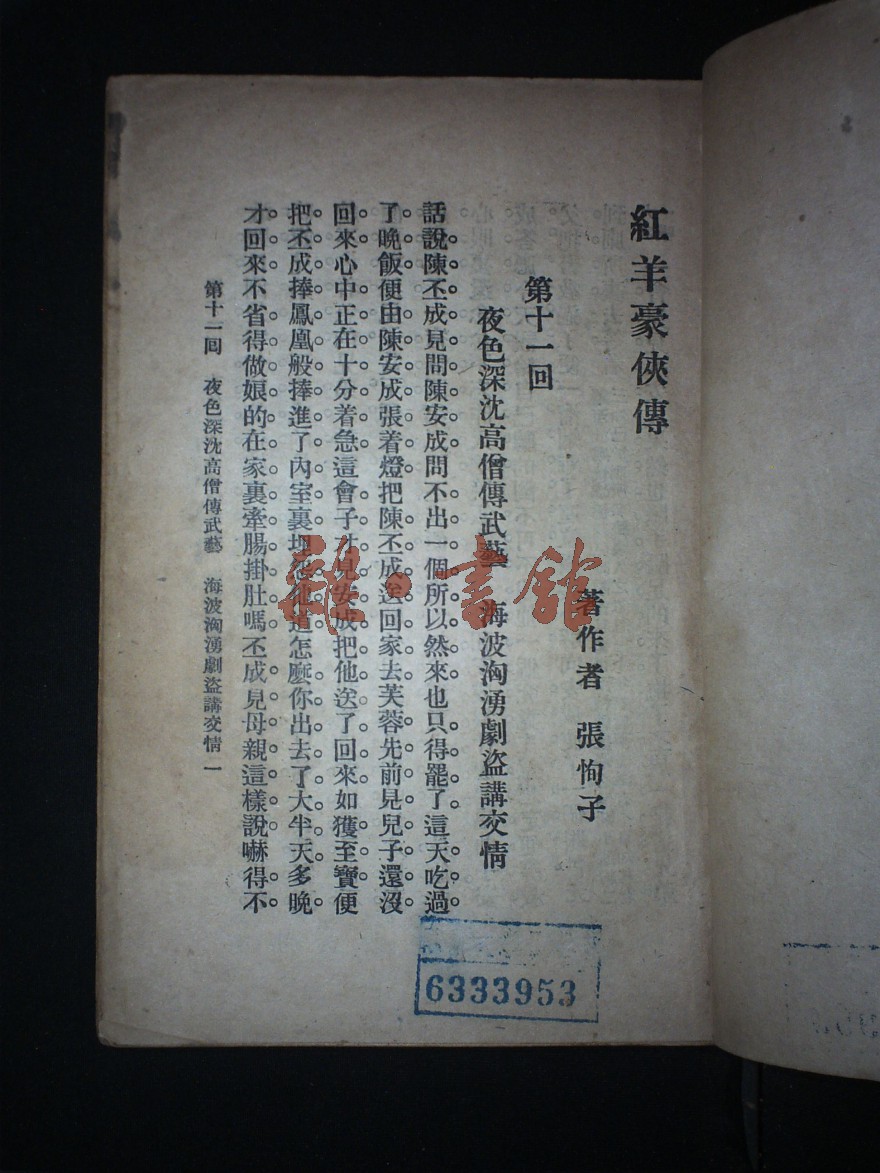 紅羊豪俠傳
著作者　張恂子
第十一回
夜色深沈高僧傳武藝　海波洶湧劇盜講交情
話說陳丕成見問陳安成問不出一個所以然來也只得罷了這天吃過
了晚飯便由陳安成張着燈把陳丕成送回家去芙蓉先前見兒子還沒
回來心中正在十分着急這會子見安成把他送了回來如獲至寶便
把丕成捧鳳凰般捧進了內室裏道怎麼你出去了大半天多晚
才回來不省得做娘的在家裏牽腸掛肚嗎丕成見母親這樣說嚇得不
第十一回　夜色深沈高僧傳武藝　海波洶湧劇盜講交情　一
雜·書館
6333953